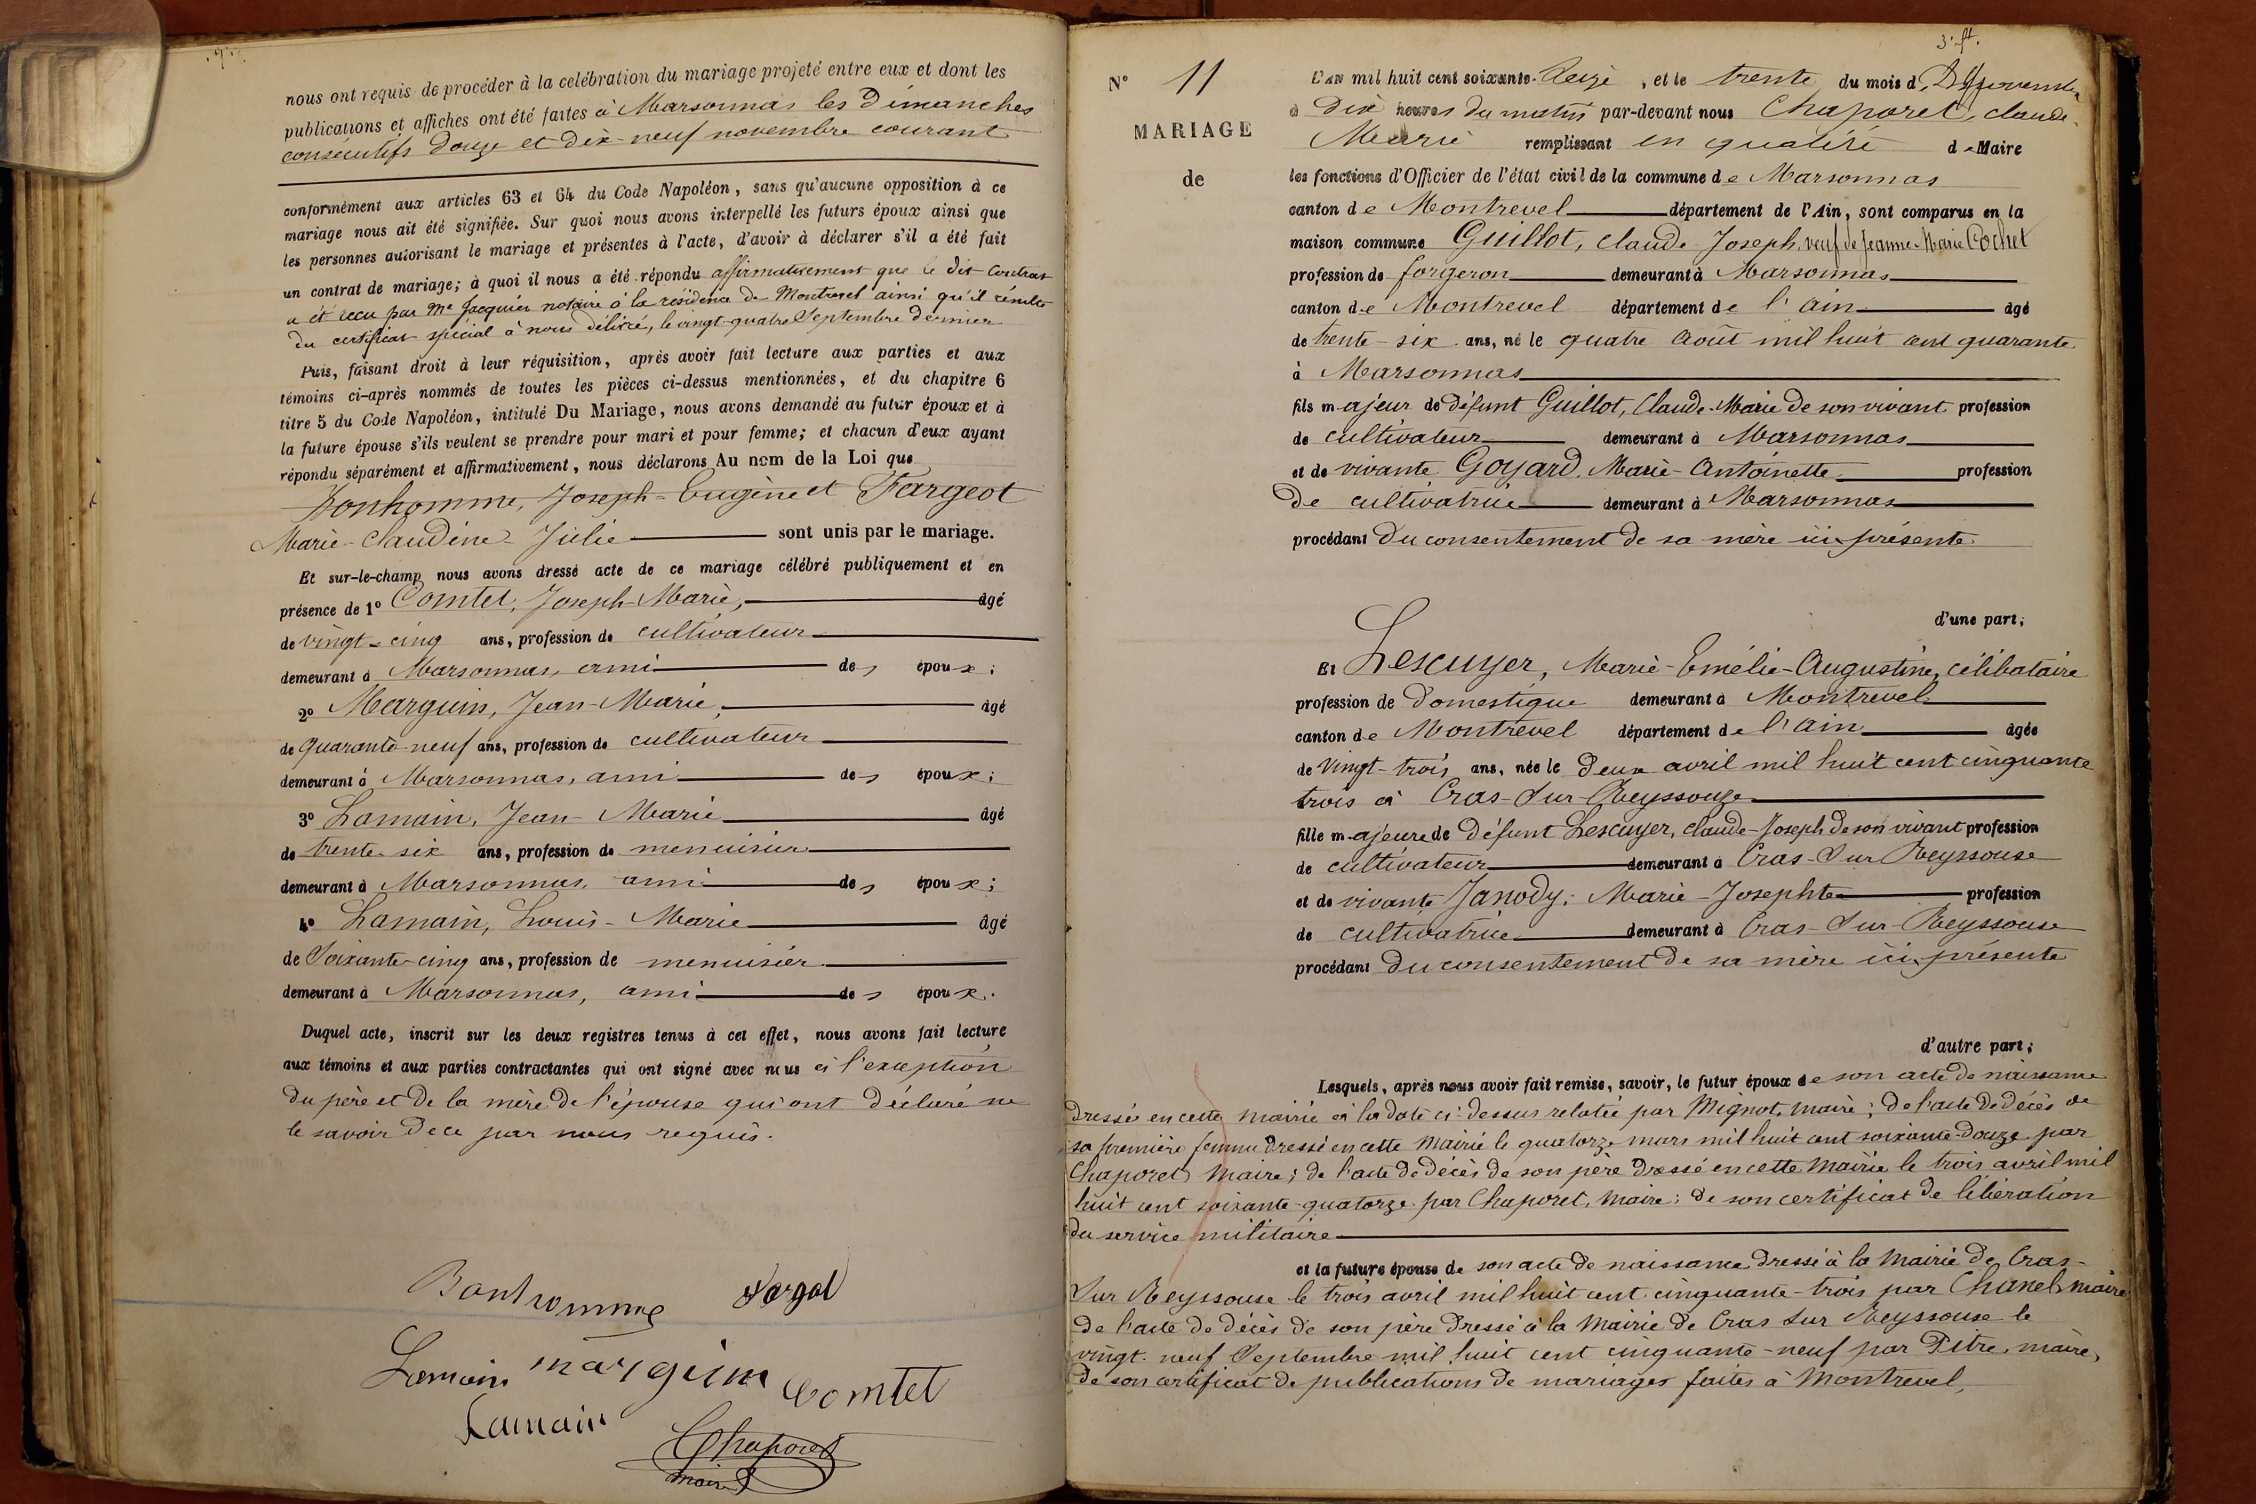 nous ont requis de procéder à la celébration du mariage projeté entre eux et dont les
publications et affiches ont été faites à Marsonnas les dimanches
consécutifs douze et dix-neuf novembre courant
conformément aux articles 63 et 64 du Code Napoléon, sans qu'aucune opposition à ce
mariage nous ait été signifiée. Sur quoi nous avons interpellé les futurs époux ainsi que
les personnes autorisant le mariage et présentes à l'acte, d'avoir à déclarer s'il a été fait
un contrat de mariage; à quoi il nous a été répondu affirmativement que le dit contrat
a été reçu par Me Jacquier notaire à la résidence de Montrevel ainsi qu'il résulte
du certificat spécial à nous délivré, le vingt-quatre Septembre dernier
Puis, faisant droit à leur réquisition, après avoir fait lecture aux parties et aux
témoins ci-après nommés de toutes les pièces ci-dessus mentionnées, et du chapitre 6
titre 5 du Code Napoléon, intitulé Du Mariage, nous avons demandé au futur époux et à
la future épouse s'ils veulent se prendre pour mari et pour femme; et chacun d'eux ayant
répondu séparément et affirmativement, nous déclarons Au nom de la Loi que
Bonhomme, Joseph-Eugène et Fargeot
Marie-Claudine-Julie sont unis par le mariage.
Et sur-le-champ nous avons dressé acte de ce mariage célébré publiquement et en
présence de 1° Comtet, Joseph-Marie, âgé
de vingt-cinq ans, profession de cultivateur
demeurant à Marsonnas, ami des époux;
2° Marguin, Jean-Marie, âgé
de quarante-neuf ans, profession de cultivateur
demeurant à Marsonnas, ami des époux;
3° Lamain, Jean-Marie âgé
de trente-six ans, profession de menuisier
demeurant à Marsonnas, ami des époux;
4° Lamain, Louis-Marie âgé
de Soixante-cinq ans, profession de menuisier
demeurant à Marsonnas, ami des époux.
Duquel acte, inscrit sur les deux registres tenus à cet effet, nous avons fait lecture
aux témoins et aux parties contractantes qui ont signé avec nous à l'exception
du père et de la mère de l'épouse qui ont déclaré ne
le savoir de ce par nous requis.
Bonhomme
Lamain marguin Comtet
Lamain
Chaporel
maire
N° 11
MARIAGE
de
L'AN mil huit cent soixante-seize, et le trente du mois de novembre
à dix heures du matin par-devant nous Chaporel, Claude
Marie remplissant en qualité de Maire
les fonctions d'Officier de l'état civil de la commune de Marsonnas
canton de Montrevel département de l'Ain, sont comparus en la
maison commune Guillot, Claude-Joseph, veuf de Jeanne-Marie Cochet
profession de forgeron demeurant à Marsonnas
canton de Montrevel département de l'ain âgé
de trente-six ans, né le quatre Août mil huit cent quarante
à Marsonnas
fils majeur de défunt Guillot, Claude-Marie de son vivant profession
de cultivateur demeurant à Marsonnas
et de vivante Goyard, Marie-Antoinette profession
de cultivatrice demeurant à Marsonnas
procédant du consentement de sa mère ici présente.
d'une part;
Et Lescuyer, Marie-Emélie-Augustine, célibataire
profession de domestique demeurant à Montrevel
canton de Montrevel département de l'ain âgée
de Vingt-trois ans, née le deux avril mil huit cent cinquante
trois à Cras-sur-Reyssouze
fille majeure de défunt Lescuyer, Claude-Joseph de son vivant profession
de cultivateur demeurant à Cras-sur Reyssouse
et de vivante Janody, Marie-Josephte profession
de cultivatrice demeurant à Cras-sur-Reyssouse
procédant du consentement de sa mère ici présente
d'autre part;
Lesquels, après nous avoir fait remise, savoir, le futur époux de son acte de naissance
dressé en cette mairie à la date ci-dessus relatée par Mignot, maire; de l'acte de décès de
sa première femme dressé en cette mairie le quatorze mars mil huit cent soixante-douze par
Chaporel maire; de l'acte de décès de son père dressé en cette Mairie le trois avril mil
huit cent soixante-quatorze par Chaporel, maire; de son certificat de libération
du service militaire
et la future épouse de son acte de naissance dressé à la Mairie de Cras-
sur Reyssouse le trois avril mil huit cent cinquante-trois par Chanel maire
de l'acte de décès de son père dressé à la Mairie de Cras sur Reyssouse le
vingt-neuf Septembre mil huit cent cinquante-neuf par Pitre, maire,
de son certificat de publications de mariages faites à Montrevel,